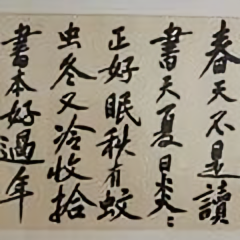 春天不是讀
書天夏日炎〻
正好眠秋有蚊
虫冬又冷收拾
書本好過年